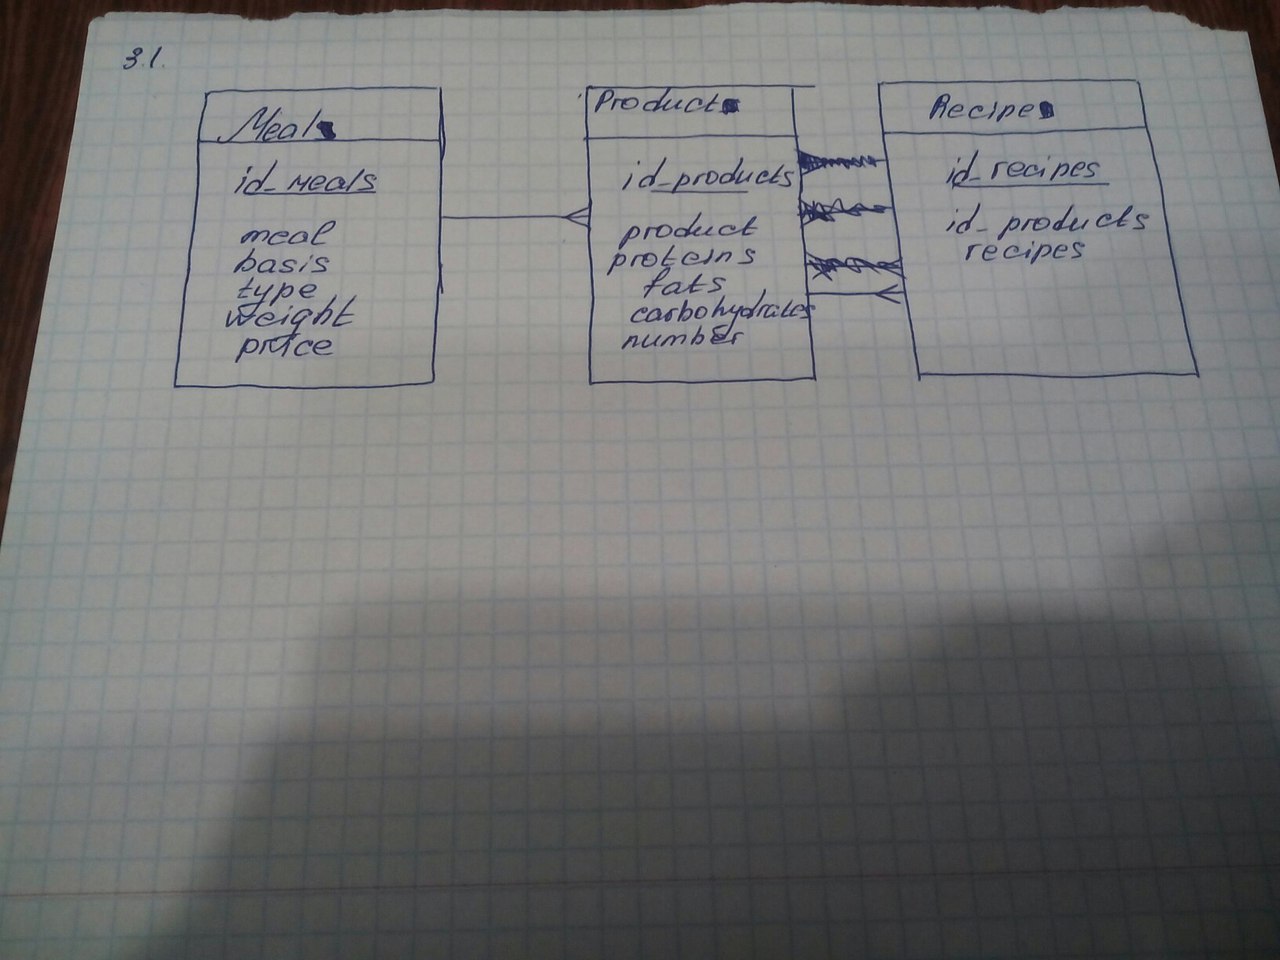 3.1.
Meal
id_meals
meal
basis
type
weight
price
Product
id_products
product
proteins
fats
carbohydrates
number
Recipe
id_recipes
id_products
recipes